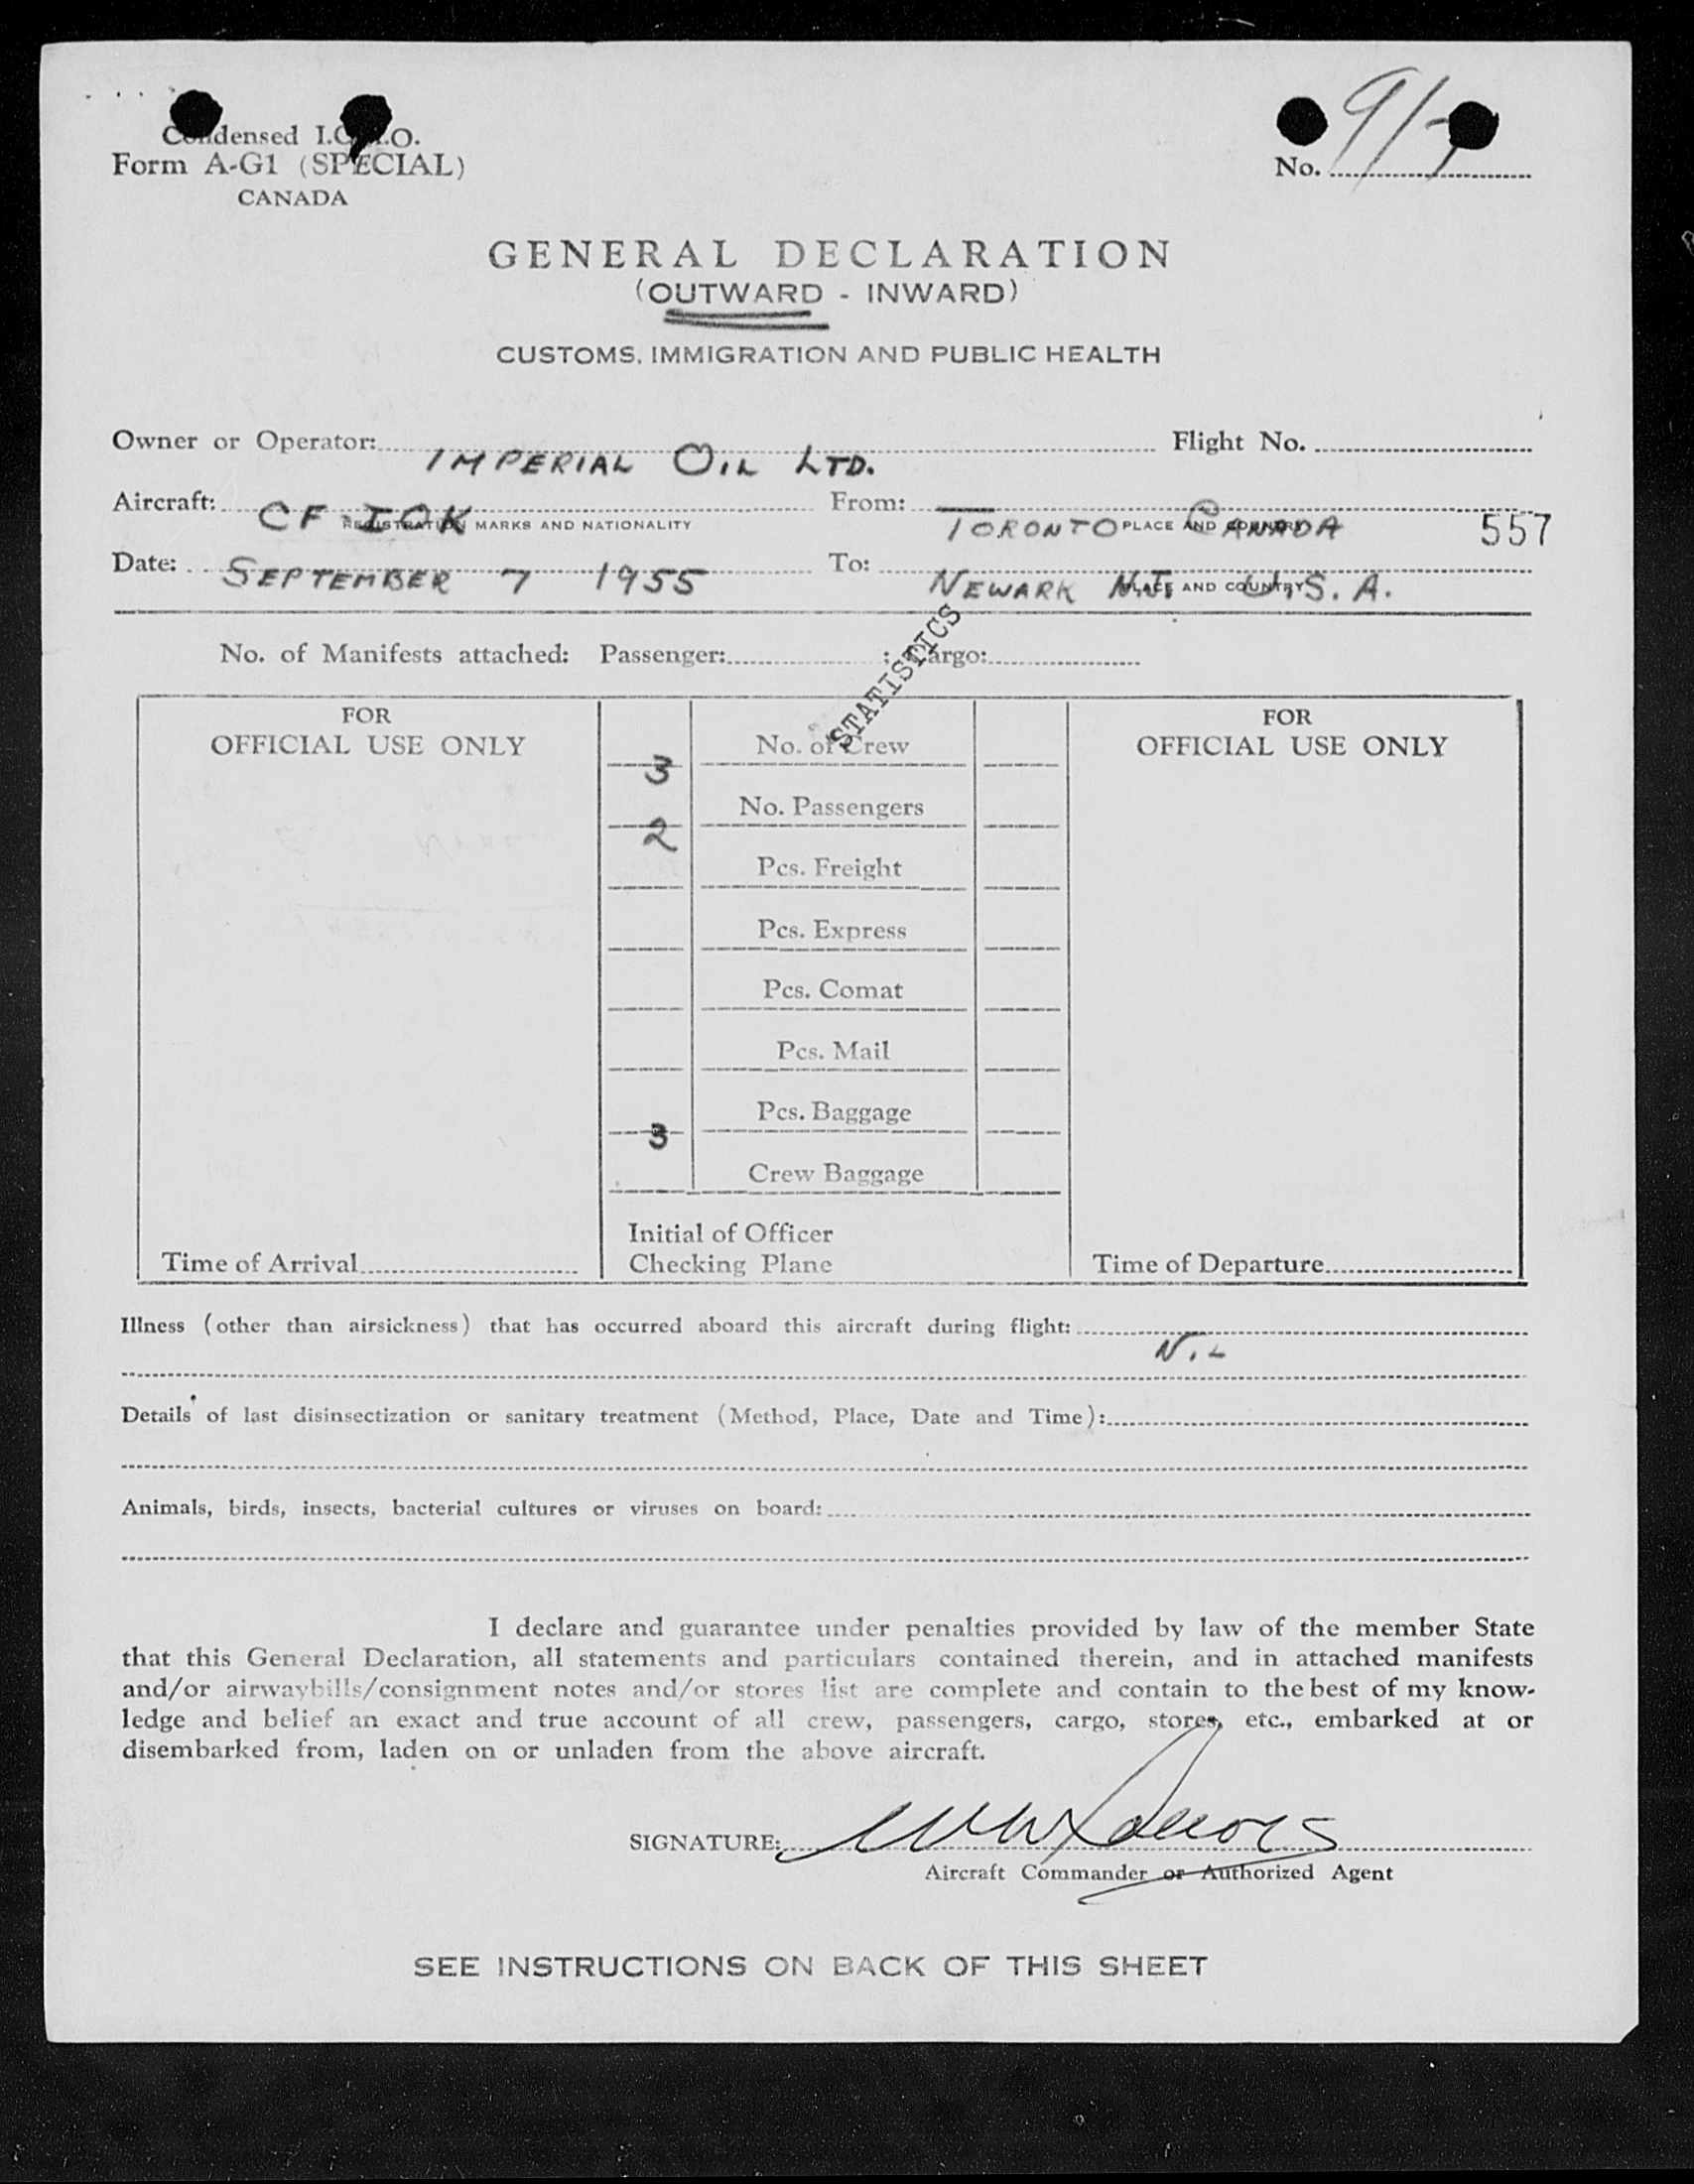 Condensed I.C.A.O.
Form A-G1 (SPECIAL)
CANADA
No. 9/7
GENERAL DECLARATION
(OUTWARD - INWARD)
CUSTOMS, IMMIGRATION AND PUBLIC HEALTH
Owner or Operator: IMPERIAL OIL LTD. Flight No.
Aircraft: CF-IOK From: TORONTO CANADA
REGISTRATION MARKS AND NATIONALITY PLACE AND COUNTRY 557
Date: SEPTEMBER 7 1955 To: NEWARK N.J. U.S.A.
PLACE AND COUNTRY
STATISTICS
No. of Manifests attached: Passenger: ; Cargo:
FOR
OFFICIAL USE ONLY
3 No. of Crew
2 No. Passengers
Pcs. Freight
Pcs. Express
Pcs. Comat
Pcs. Mail
3 Pcs. Baggage
Crew Baggage
FOR
OFFICIAL USE ONLY
Time of Arrival
Initial of Officer
Checking Plane
Time of Departure
Illness (other than airsickness) that has occurred aboard this aircraft during flight:
NIL
Details of last disinsectization or sanitary treatment (Method, Place, Date and Time):
Animals, birds, insects, bacterial cultures or viruses on board:
I declare and guarantee under penalties provided by law of the member State
that this General Declaration, all statements and particulars contained therein, and in attached manifests
and/or airwaybills/consignment notes and/or stores list are complete and contain to the best of my know-
ledge and belief an exact and true account of all crew, passengers, cargo, stores, etc., embarked at or
disembarked from, laden on or unladen from the above aircraft.
SIGNATURE:
Aircraft Commander or Authorized Agent
SEE INSTRUCTIONS ON BACK OF THIS SHEET